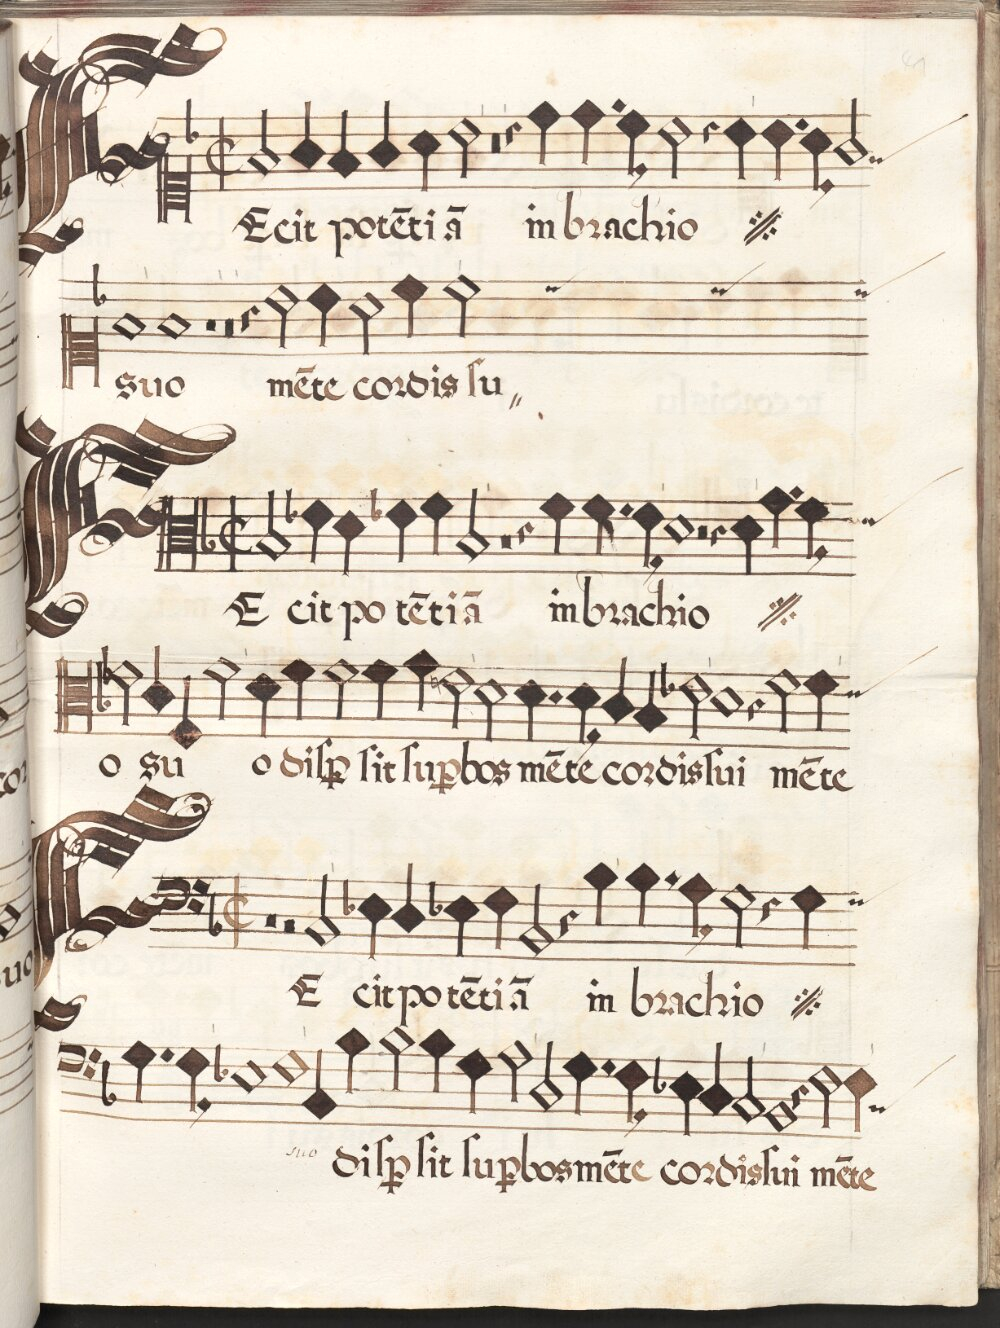 FEcit potēti ā in brachio
suo mēte cordis su
FE cit po tēti ā in brachio
o su o disp̱ sit sup̱bos mēte cordis sui mēte
FE cit po tēti ā in brachio
suo disp̱ sit sup̱bos mēte cordis sui mēte